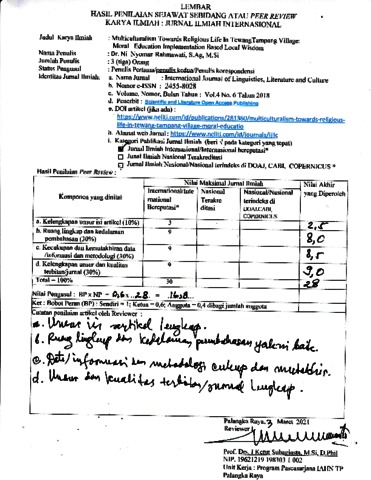 LEMBAR
HASIL PENILAIAN SEJAWAT SEBIDANG ATAU PEER REVIEW
KARYA ILMIAH : JURNAL ILMIAH INTERNASIONAL
Judul Karya Ilmiah : Multiculturalism Towards Religious Life in TewangTampang Village:
Moral Education Implementation Based Local Wisdom
Nama Penulis : Dr. Ni Nyoman Rahmawati, S.Ag, M.Si
Jumlah Penulis : 3 (tiga) Orang
Status Pengusul : Penulis Pertama/penulis kedua/Penulis korespondensi
Identitas Jurnal Ilmiah : a. Nama Jurnal : International Journal of Linguistics, Literature and Culture
b. Nomor e-ISSN : 2455-8028
c. Volume, Nomor, Bulan Tahun : Vol.4 No. 6 Tahun 2018
d. Penerbit : Scientific and Literature Open Access Publishing
e. DOI artikel (jika ada) :
https://www.neliti.com/id/publications/281340/multiculturalism-towards-religious-
life-in-tewang-tampang-village-moral-educatio
h. Alamat web Jurnal : https://www.neliti.com/id/journals/ijllc
i. Kategori Publikasi Jurnal Ilmiah (beri √ pada kategori yang tepat)
Jurnal Ilmiah Internasional/Internasional bereputasi*
Jurnal Ilmiah Nasional Terakreditasi
Jurnal Ilmiah Nasional/Nasional terindeks di DOAJ, CABI, COPERNICUS *
Hasil Penilaian Peer Review :
Komponen yang dinilai
Nilai Maksimal Jurnal Ilmiah
Nilai Akhir yang Diperoleh
Internasional/Internasional Bereputasi*
Nasional Terakreditasi
Nasional/Nasional terindeks di DOAJ, CABI, COPERNICUS
a. Kelengkapan unsur isi artikel (10%) 3 2,5
b. Ruang lingkup dan kedalaman pembahasan (30%) 9 8,0
c. Kecukupan dan kemutakhiran data /informasi dan metodologi (30%) 9 8,5
d. Kelengkapan unsur dan kualitas terbitan/jurnal (30%) 9 9,0
Total = 100% 30 28
Nilai Pengusul : BP x NP = 0,6 x 28 = 16,8
Ket : Bobot Peran (BP) : Sendiri = 1; Ketua = 0,6; Anggota = 0,4 dibagi jumlah anggota
Catatan penilaian artikel oleh Reviewer :
a. Unsur isi artikel lengkap.
b. Ruang lingkup dan kedalaman pembahasan
c. Data/informasi dan metodologi cukup dan mutakhir.
d. Unsur dan kualitas terbitan/jurnal lengkap.
Palangka Raya, Maret 2021
Reviewer
Prof. Drs. I Ketut Subagiasta, M.Si, D.Phil
NIP. 19621219 198303 1 002
Unit Kerja : Program Pascasarjana IAHN TP
Palangka Raya